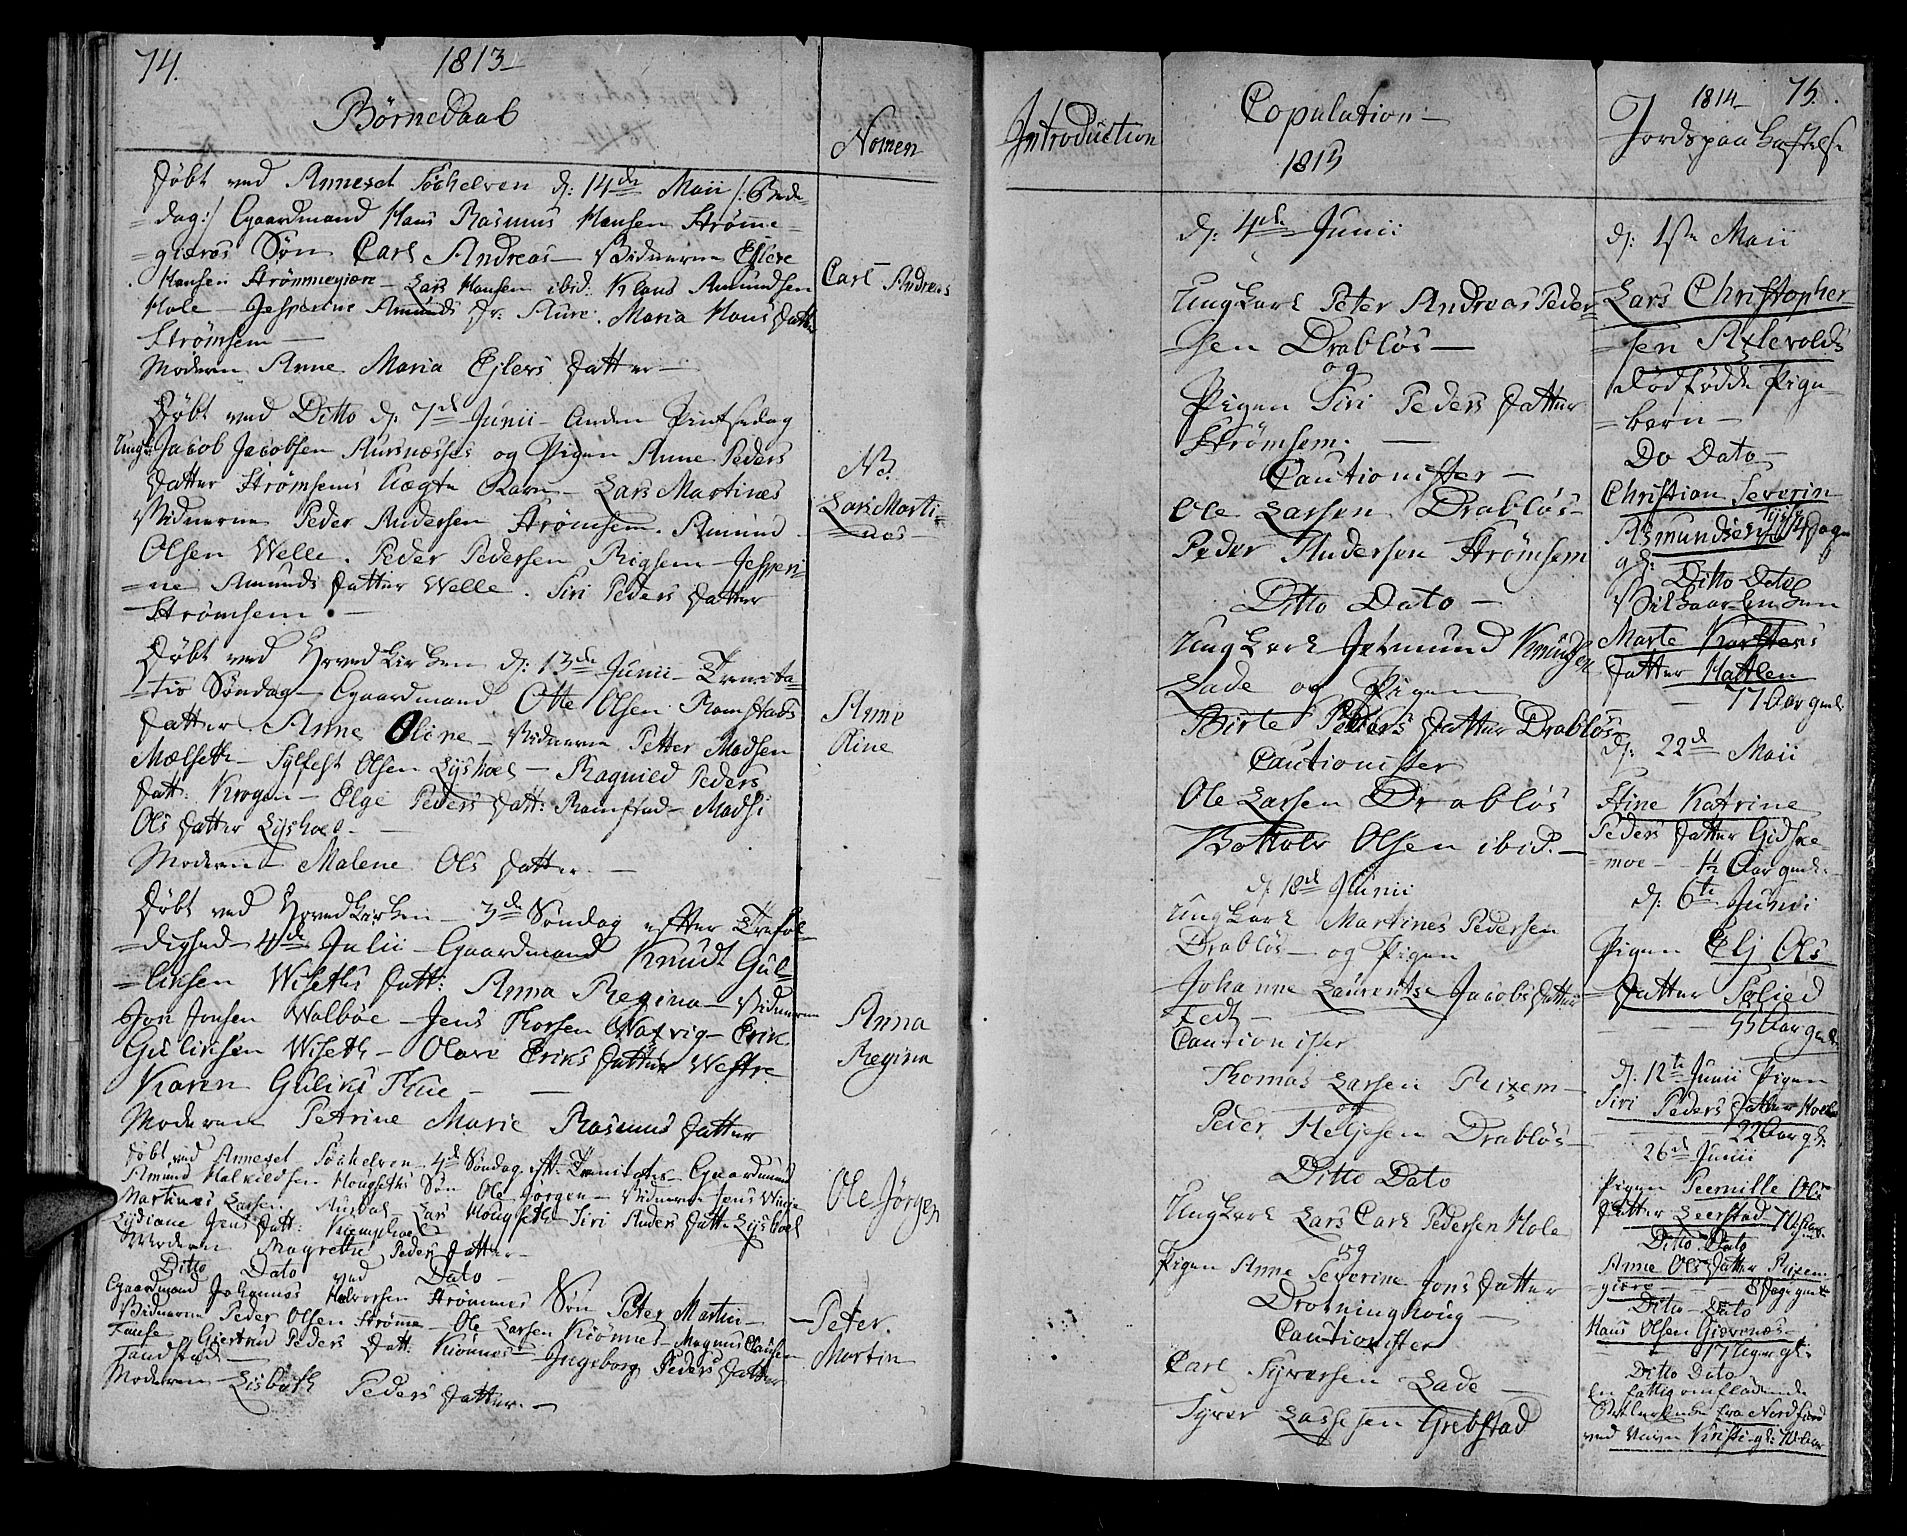 74.
1813
Børnedaab
Nomen
Døbt ved Annexet Søchelven d: 14de Maii /: Bede-
=dag:/ Gaardmand Hans Rasmus Hansen Strømme-
=giæres Søn Carl Andreas - Vidnerne Ejlert
Hansen Strømmegiære - Lars Hansen ibid: Klaus Amundsen
Hole - Jesperine Amunds Dr. Aure. Maria Hans Datter
Strømsem -
Moderen Anne Maria Ejlers Datter -
Carl Andreas
Døbt ved Ditto d: 7de Junii - Anden Pintsedag
Ungk: Jacob Jacobsen Aursnæsses og Pigen Anne Peders
Datter Strømsems Uægte Barn - Lars Martines
Vidnerne Peder Andersen Strømsem. Amund
Olsen Welle. Peder Pedersen Rigsem - Jesperi-
=ne Amunds Datter Welle. Siri Peders Datter
Strømsem. -
NB.
Lars Marti-
=nes -
Døbt ved Hovedkirken d: 13de Junii - Trinita-
=tis Søndag - Gaardmand Otte Olsen Ramstads
Datter Anne Oline - Vidnerne Petter Madsen
Mælseth - Sylfest Olsen Lyshoel - Ragnild Peders
Datt: Krogen - Elge Peders Datt: Ramstad - Madsi
Ols Datter Lyshoel -
Moderen Malene Ols Datter -
Anne
Oline
Døbt ved Hovedkirken - 3de Søndag efter Trefol-
=dighed - 4de Julii - Gaardmand Knudt Gul-
=liksen Wiseths Datt: Anna Regina - Vidnerne
Jon Jonsen Walbøe - Jens Thorsen Watvig - Erik
Guliksen Wiseth - Olave Eriks Datter Westre
Karen Guliks Hue -
Moderen Petrine Marie Rasmus Datter
Anna
Regina
Døbt ved Annexet Søchelven 4de Søndag eft. Trinitatis - Gaardmand
Amund Halvildsen Hougseths Søn Ole Jørgen - Vidnerne Jens
Martines Larsen - Lars Hougseth - Siri Anders Datter Lyshoel
Lydiane Jens Datt:
Moderen Magrethe Peders Datter -
Ole Jørgen
Ditto Dato ved Dato -
Gaardmand Johannes Halvorsen Strømmes Søn Peter Martin -
Vidnerne Peder Olsen Strømme - Ole Larsen Kiønnes - Magnus Clausen
Gjertrud Peders Datt. Kiønnes - Ingeborg Peders Datter
Tandstad -
Moderen Lisbeth Peders Datter -
Peter
Martin
Introduction
Copulation -
1813
d: 4de Junii
Ungkarl Peter Andreas Peder-
=sen Drabløs -
og
Pigen Siri Peders Datter
Strømsem. -
Cautionister -
Ole Larsen Drabløs -
Peder Andersen Strømsem
Ditto Dato -
Ungkarl Jetmund Knudsen
Lade og Pigen
Birte Peders Datter Drabløs -
Cautionister
Ole Larsen Drabløs
Olsen ibid. -
d: 18de Junii
Ungkarl Martines Pedersen
Drabløs - og Pigen
Johanne Laurentze Jacobs Datter
Fedt -
Cautionister
Thomas Larsen Rixem -
og
Peder Heljesen Drabløs -
Ditto Dato
Ungkarl Lars Carl Pedersen Hole
og
Pigen Anne Severine Jons Datter
Drotninghoug -
Cautionister
Carl Syversen Lade -
Syver Lassesen Grebstad
1814 75.
Jordspaakastelse
d: 1ste Maii
Lars Christopher-
=sen Axlevolds
dødfødde Pige-
=barn -
Do Dato -
Christian Severin
Asmundsen 14 Dage
gl:
Ditto Dato
Vilkaar Enken
Marte Karstens
Datter Hatlen
- 77 Aar gml
d: 22de Maii
Stine Katrine
Peders Datter Gidske-
=moe - 1/2 Aar gml: -
d: 6te Junii
Pigen Elj Ols
Datter Solied
- - 55 Aar gml:
d: 12te Junii Pigen
Siri Peders Datter Hole
- 22 Aar gl:
26de Junii
Pigen Peernille Ols
Datter Leerstad 70 Aar.
Ditto Dato
Anne Ols Datter Rixem-
gjære - 8 Dage gml
Ditto Dato
Hans Olsen Giævenæs -
17 Uger gl:
Ditto Dato
En fattig omflakkende
fra Nordfiord
ved Navn Kirsti - gl: 70 Aar